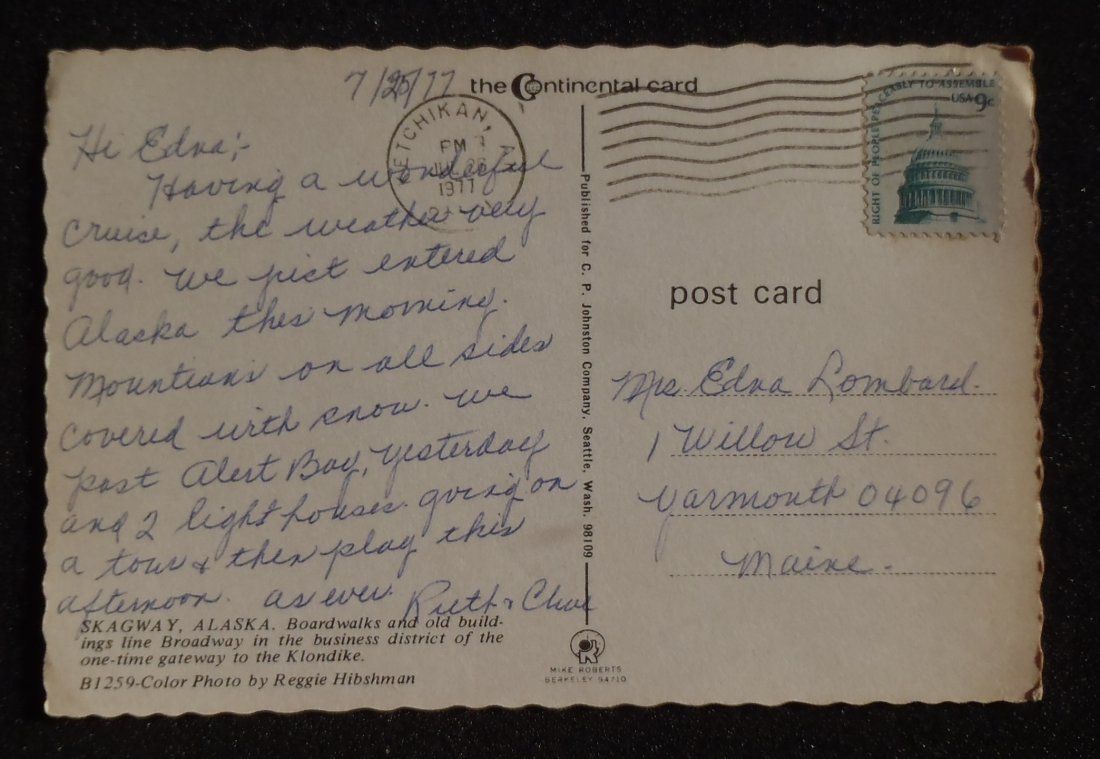 7/25/77
the Continental card
KETCHIKAN,
PM
1977
RIGHT OF PEOPLE PEACEABLY TO ASSEMBLE
USA 9c
Hi Edna;-
Having a wonderful
cruise, the weather very
good. We just entered
Alaska this morning.
Mountians on all sides
covered with snow. We
past Alert Bay, yesterday
and 2 light houses. going on
a tour & then play this
afternoon. as ever. Ruth &
Published for C. P. Johnston Company, Seattle, Wash. 98109
post card
Mrs. Edna Lombard.
1 Willow St.
Yarmouth 04096
Maine.
SKAGWAY, ALASKA. Boardwalks and old build-
ings line Broadway in the business district of the
one-time gateway to the Klondike.
B1259-Color Photo by Reggie Hibshman
MIKE ROBERTS
BERKELEY 94710